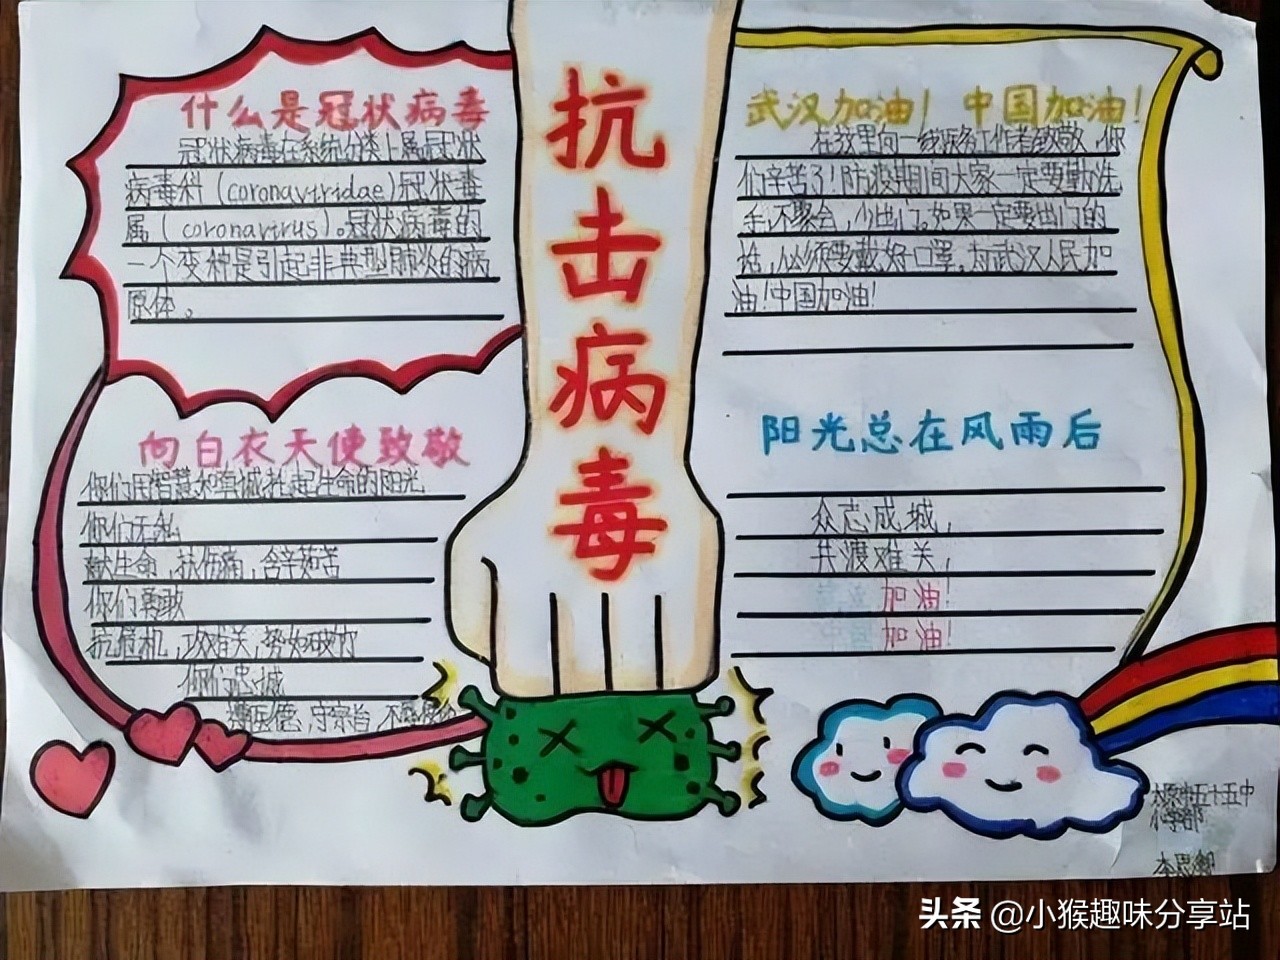 抗击病毒
什么是冠状病毒
冠状病毒在系统分类上属冠状
病毒科(coronaviridae)冠状毒
属(coronavirus)。冠状病毒的
一个变种是引起非典型肺炎的病
原体。
武汉加油!中国加油!
在这里向一线医务工作者致敬,你
们辛苦了!防疫期间大家一定要勤洗
手,不聚会,少出门。如果一定要出门的
话,必须要戴好口罩。为武汉人民加
油!中国加油!
向白衣天使致敬
你们用智慧和真诚社起生命的阳光
你们无私
献生命,扶伤痛,含辛茹苦
你们勇敢
抗危机,攻难关,势如破竹
你们忠诚
遵医德,守宗旨,不
阳光总在风雨后
众志成城,
共渡难关,
加油!
中国加油!
太原市五十五中
小学部
头条 @小猴趣味分享站